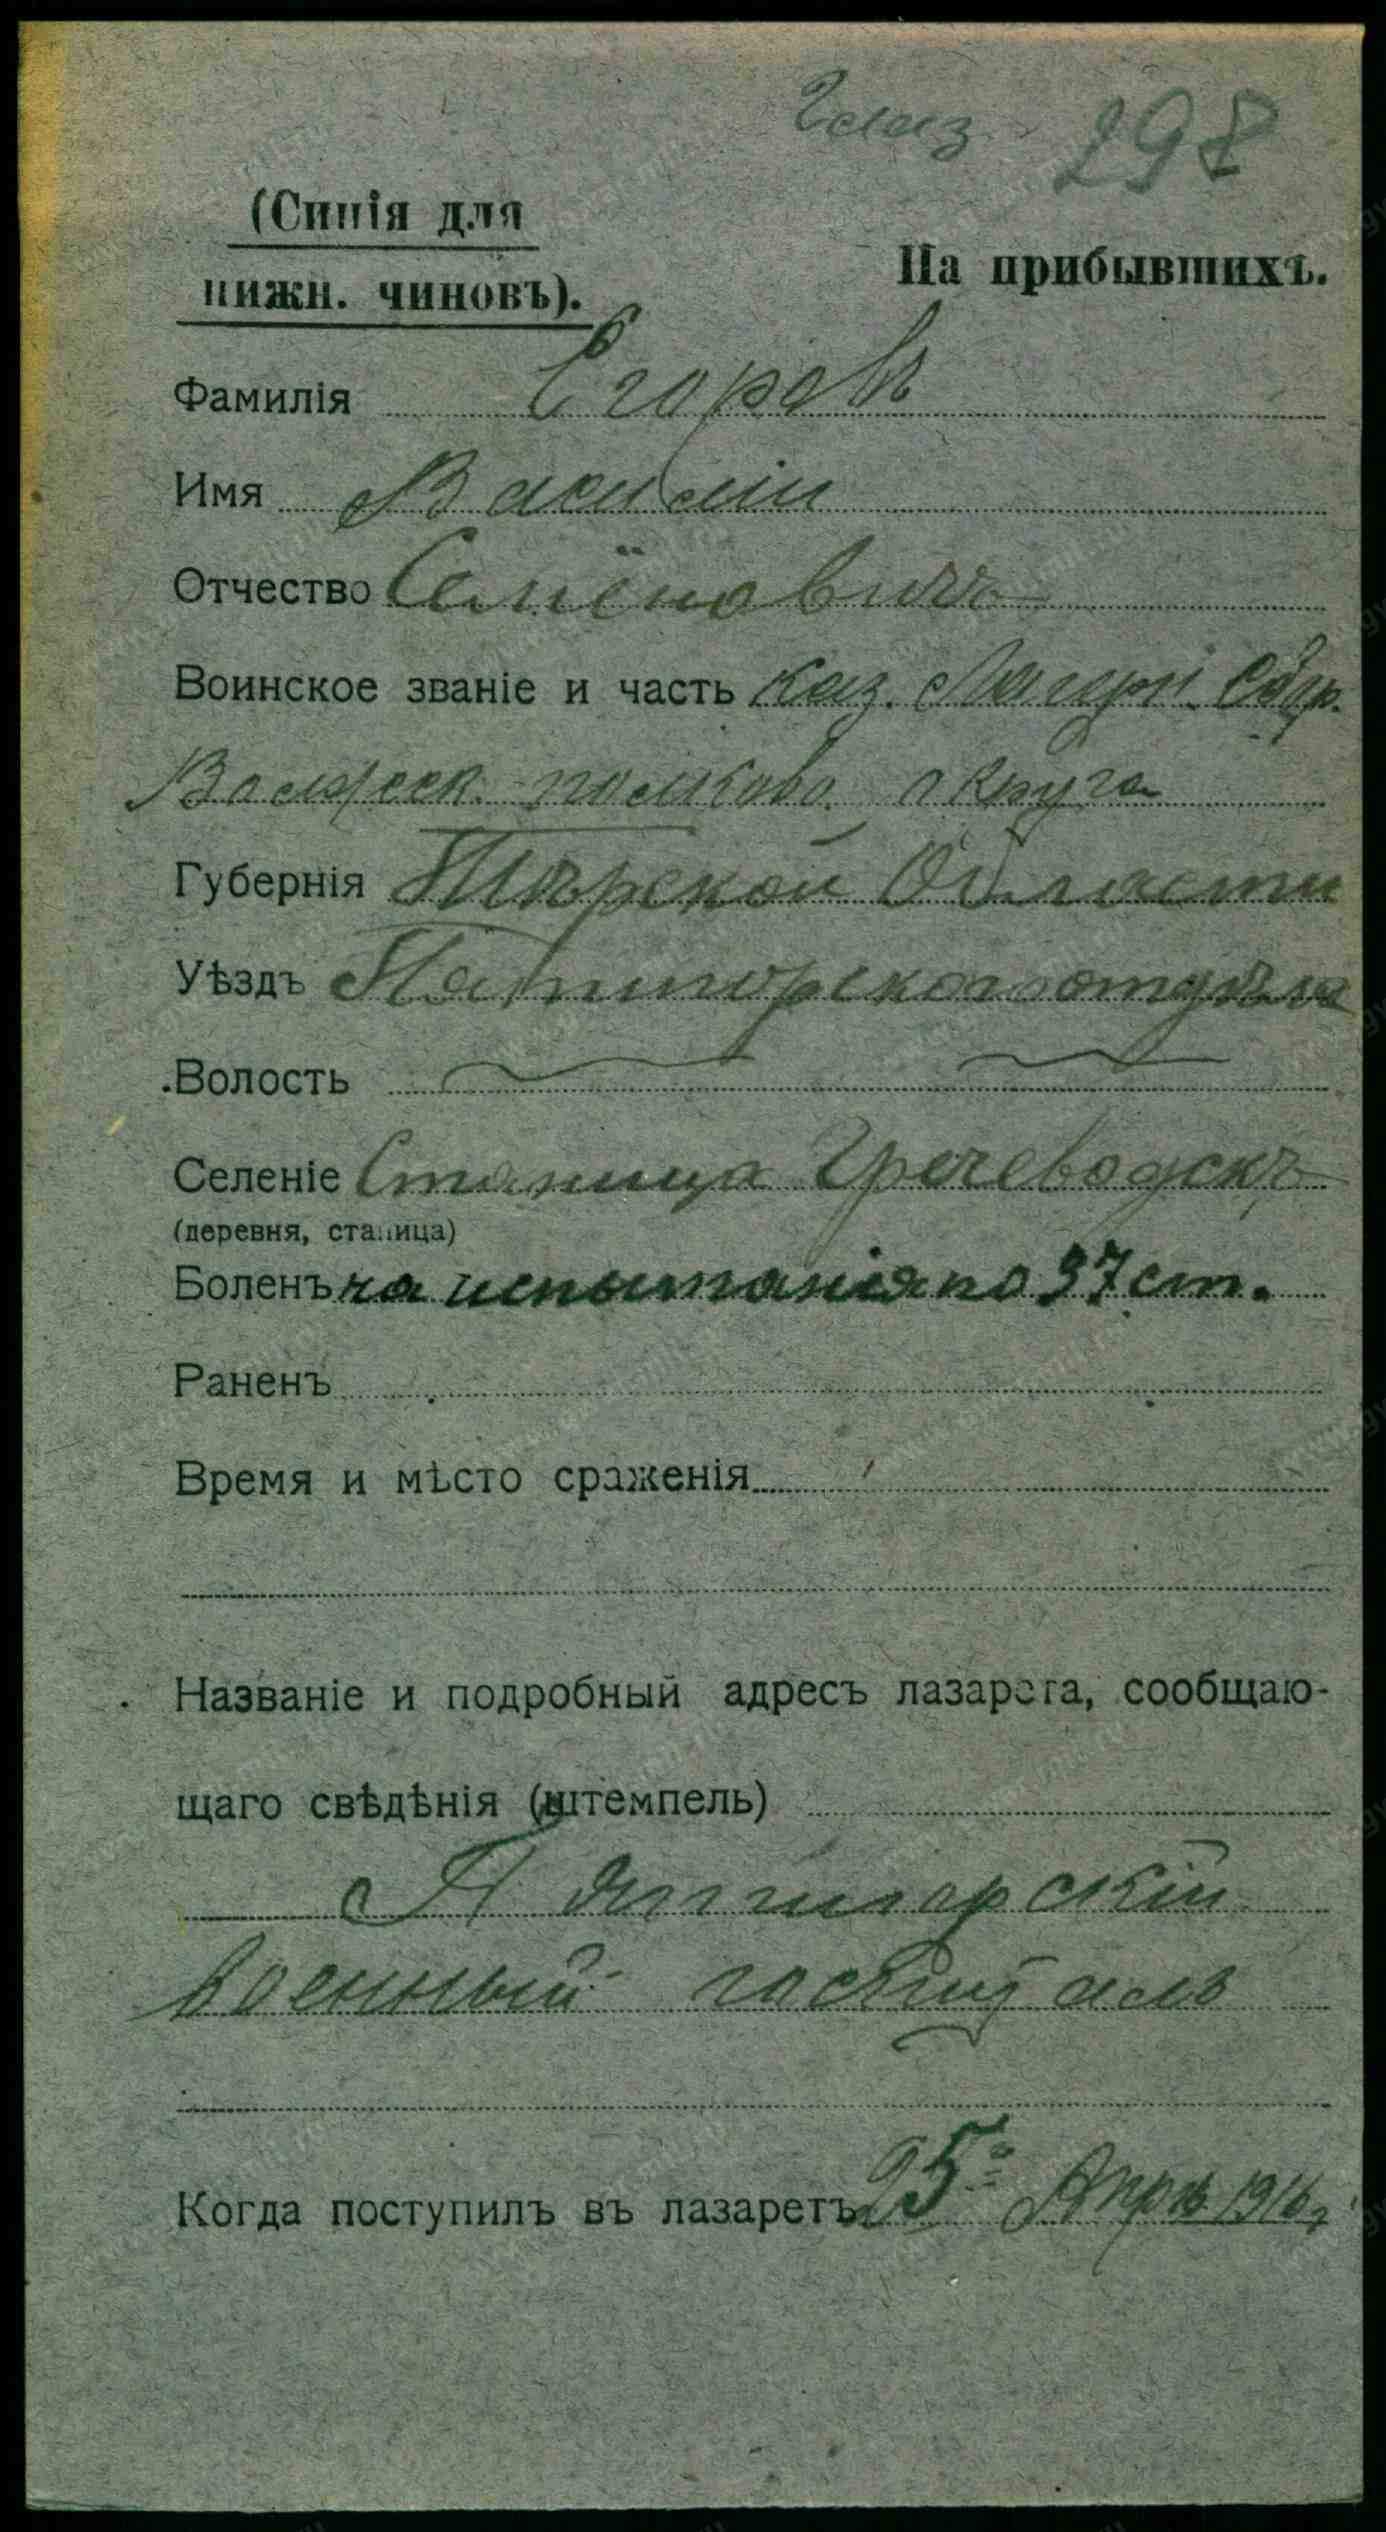 Глаз 298
(Синія для
нижн. чиновъ).
На прибывшихъ.
Фамилія Егоровъ
Имя Василій
Отчество Семёновичъ
Воинское званіе и часть каз. Лагерн. Сбор.
Волжск. полково. округа
Губернія Терской Области
Уѣздъ Пятигорскаго отдѣла
Волость
Селеніе Станица Гречеводскъ
(деревня, станица)
Боленъ на испытанія по 37 ст.
Раненъ
Время и мѣсто сраженія
Названіе и подробный адресъ лазарета, сообщаю-
щаго свѣдѣнія (штемпель)
Пятигорскій
военный госпиталь
Когда поступилъ въ лазаретъ 25го Апрѣ 1916 г